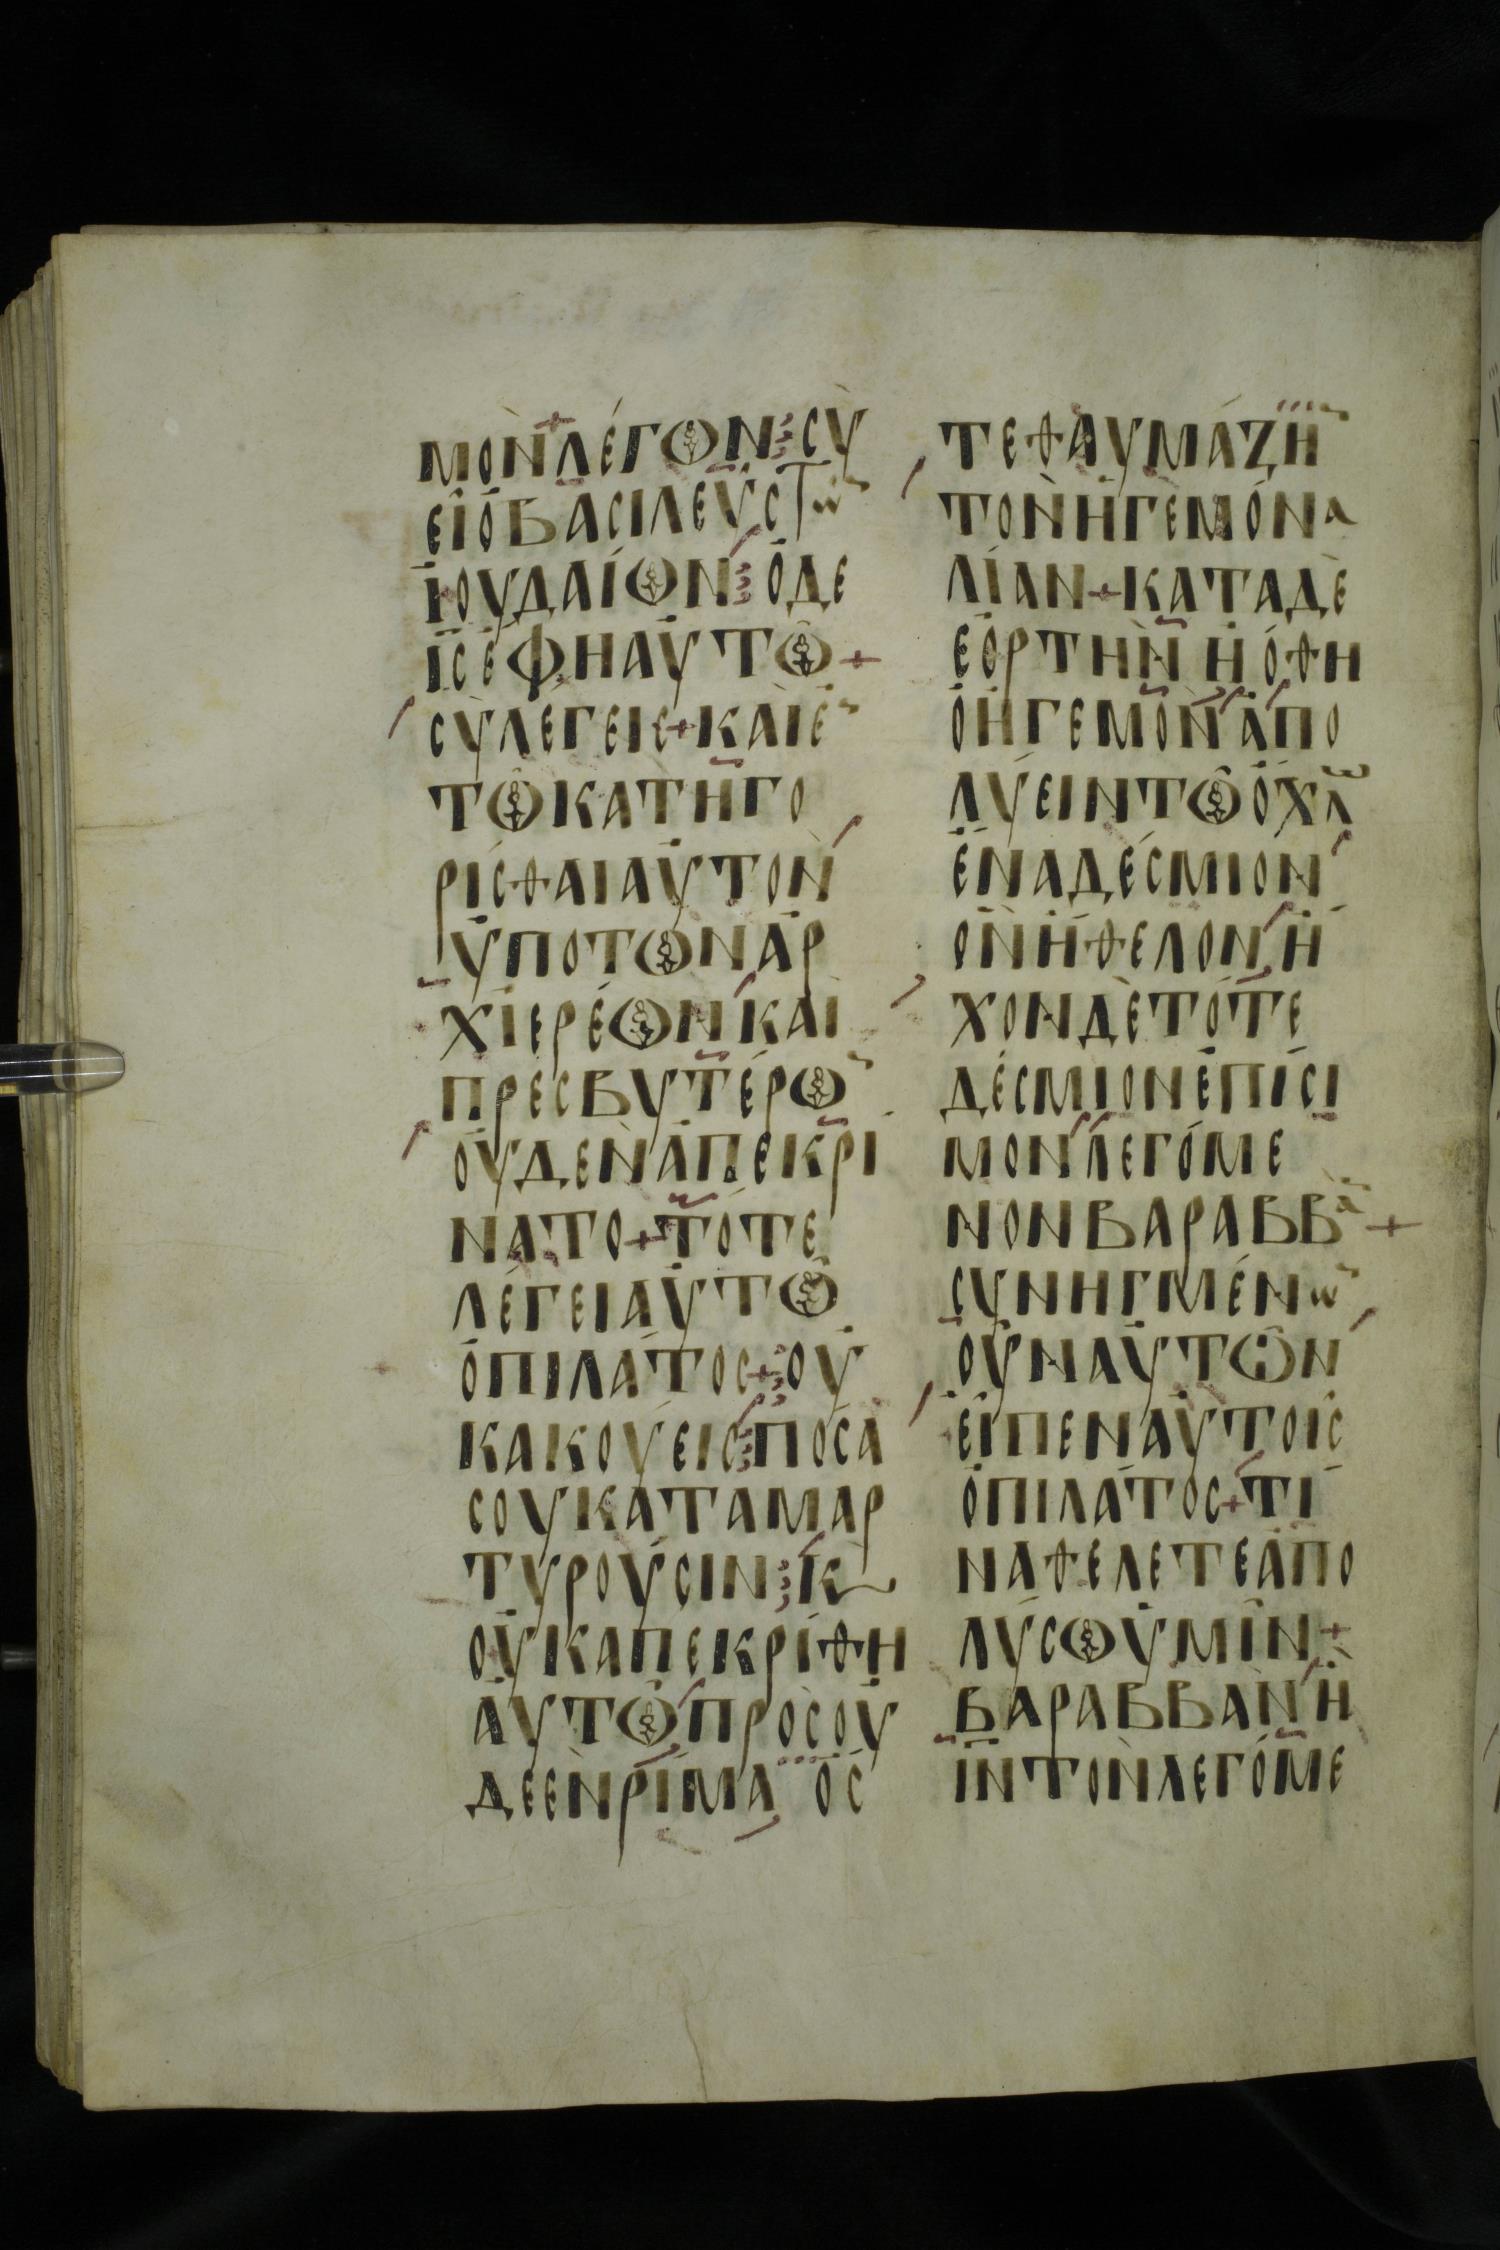 ΜῸΝΛΈΓΩΝ ΣῪ
ΕἾ ὉΒΑΣΙΛΕῪΣΤῶ
ἸΟΥΔΑΊΩΝ ὉΔΕ
ΙΣ ἜΦΗΑΥ̓ΤΩ͂ +
ΣῪΛΈΓΕΙΣ + ΚΑῚἘ
ΤΩ͂ΚΑΤΗΓΟ
ΡΊΣΘΑΙΑΥ̓ΤῸΝ
ὙΠΟΤΩΝἈΡ
ΧΙΕΡΈΩΝ ΚΑῚ
ΠΡΕΣΒΥΤΈΡΩ
ΟΥ̓ΔῈΝἈΠΕΚΡΊ
ΝΑΤΟ + ΤΌΤΕ
ΛΈΓΕΙΑΥ̓ΤΩ͂
ὉΠΙΛΆΤΟΣ + ΟΥ̓
ΚΑΚΟΎΕΙΣ ΠΌΣΑ
ΣΟΥΚΑΤΑΜΑΡ
ΤΥΡΟΥ͂ΣΙΝ Κ
ΟΥ̓ΚΑΠΕΚΡΊΘΗ
ΑΥ̓ΤΩ͂ΠΡῸΣΟΥ̓
ΔΕἚΝΡΊΜΑ ὉΣ
ΤΕΘΑΥΜΆΖΗ
ΤῸΝἩΓΕΜΌΝΑ
ΛΊΑΝ + ΚΑΤΑΔῈ
ἙΟΡΤῊΝ ἨΌΘΗ
ὉἩΓΕΜῺΝἈΠΟ
ΛΎΕΙΝΤΩ͂ὈΧΛω
ἝΝΑΔΈΣΜΙΟΝ
ὉΝἨΘΕΛΟΝ ΕἸ
ΧΟΝΔῈΤΌΤΕ
ΔΈΣΜΙΟΝἘΠΊΣΙ
ΜΟΝ ΛΕΓΌΜΕ
ΝΟΝΒΑΡΑΒΒᾶ +
ΣΥΝΗΓΜΈΝω
ΟΥ̓͂ΝΑΥ̓ΤΩ͂Ν
ΕἾΠΕΝΑΥ̓ΤΟΙ͂Σ
ὉΠΙΛΆΤΟΣ + ΤΊ
ΝΑΘΕΛΕΤΕἈΠΟ
ΛΎΣΩὙΜΙ͂Ν +
ΒΑΡΑΒΒᾺΝ Ἢ
ΙΝ ΤῸΝΛΕΓΌΜΕ